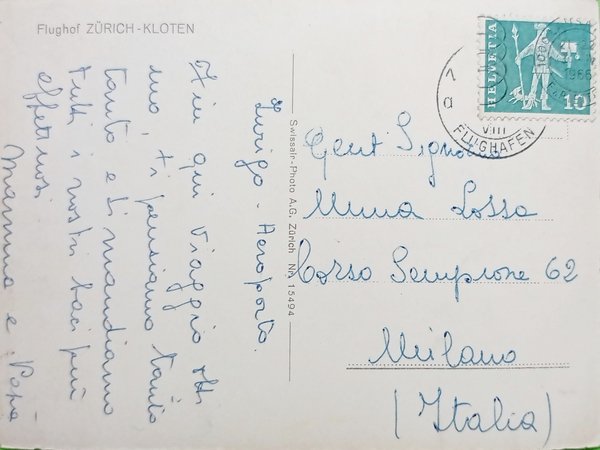 Flughof ZÜRICH-KLOTEN
Zurigo - Aeroporto.
Fin qui viaggio otti
mo, ti pensiamo tanto
tanto e ti mandiamo
tutti i nostri baci più
affettuosi
Mamma e Papà
Swissair-Photo A.G. Zürich Nr. 15494
HELVETIA
10
1966
VIII
FLUGHAFEN
Gent Signora
Lossa
Corso Sempione 62
Milano
(Italia)